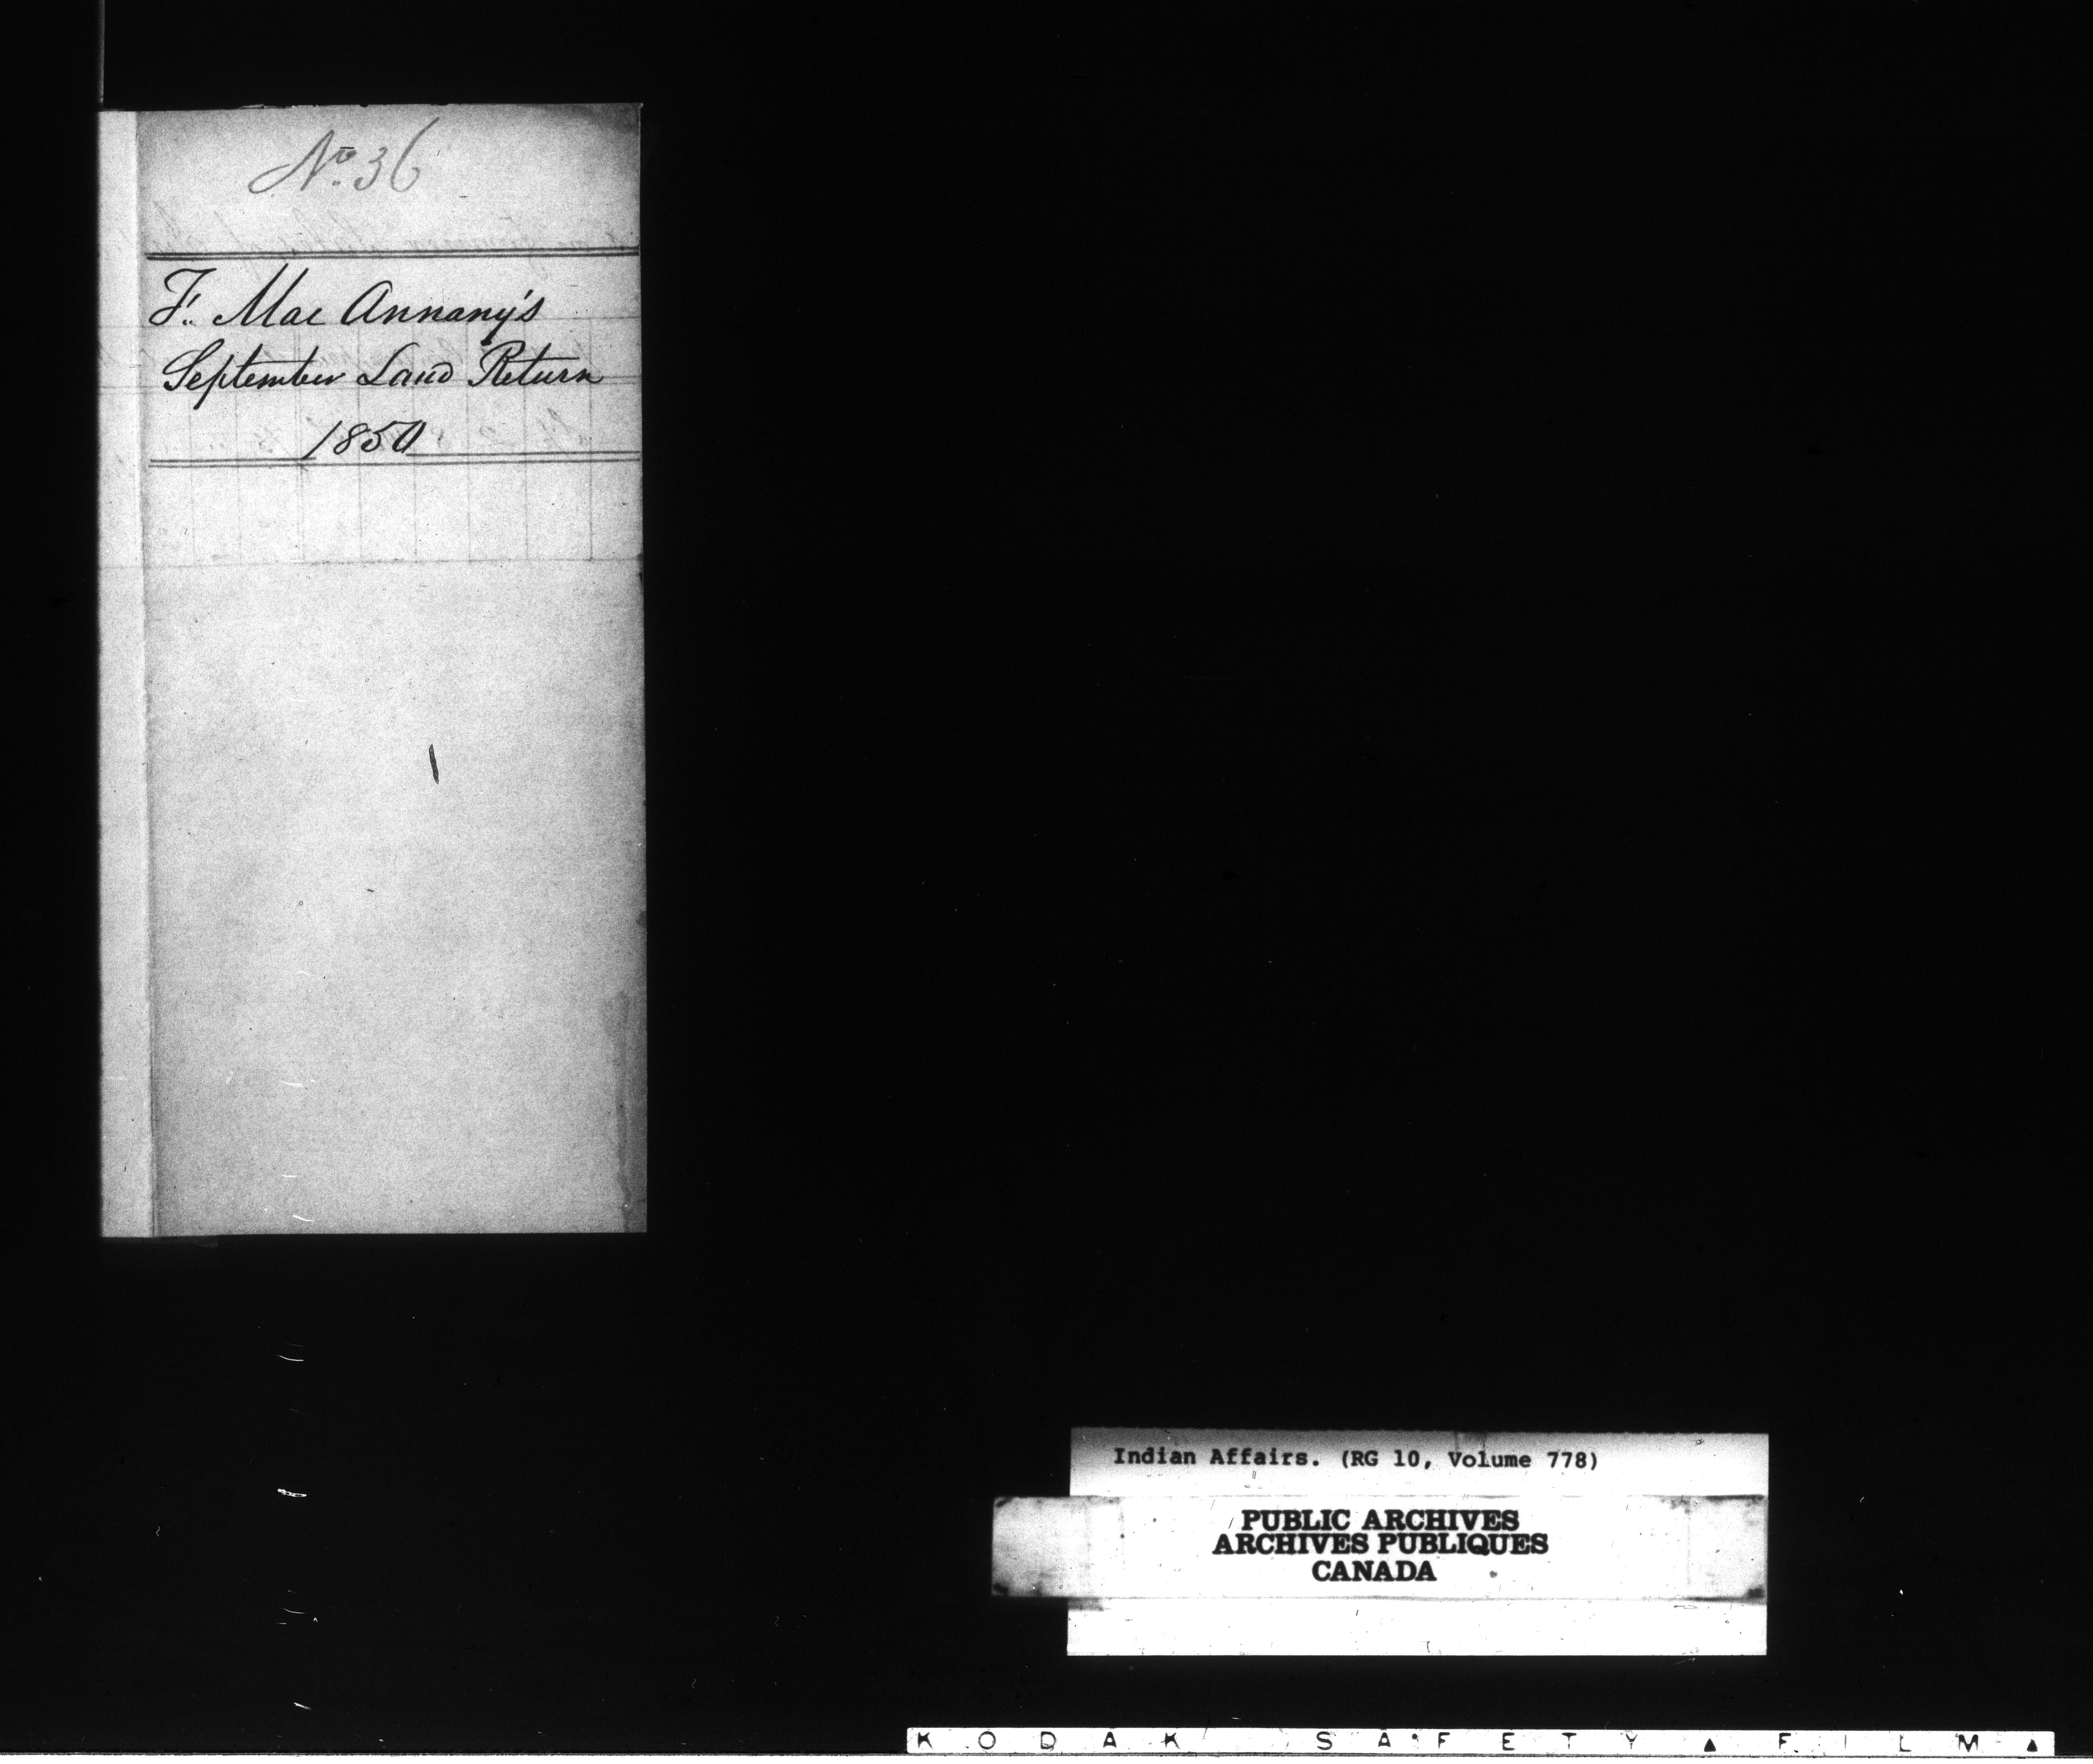 No. 36
F. Mac Annany's
September Land Return
1850
Indian Affairs. (RG 10, Volume 778)
PUBLIC ARCHIVES
ARCHIVES PUBLIQUES
CANADA
KODAK SAFETY ▲ FILM ▲